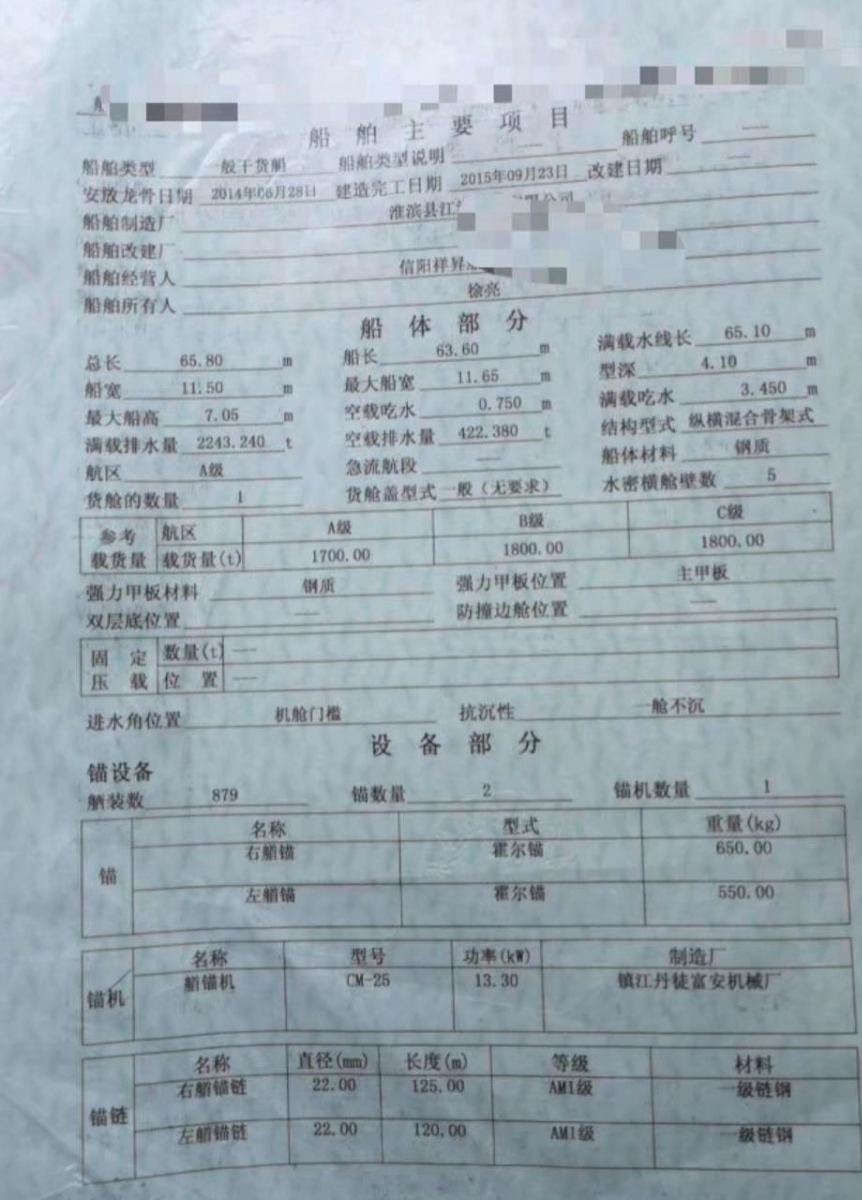 船舶主要项目
船舶类型 一般干货船 船舶类型说明 —— 船舶呼号 ——
安放龙骨日期 2014年06月28日 建造完工日期 2015年09月23日 改建日期 ——
船舶制造厂 淮滨县江
船舶改建厂
船舶经营人 信阳祥昇
船舶所有人 徐亮
船体部分
总长 65.80 m 船长 63.60 m 满载水线长 65.10 m
船宽 11.50 m 最大船宽 11.65 m 型深 4.10 m
最大船高 7.05 m 空载吃水 0.750 m 满载吃水 3.450 m
满载排水量 2243.240 t 空载排水量 422.380 t 结构型式 纵横混合骨架式
航区 A级 急流航段 —— 船体材料 钢质
货舱的数量 1 货舱盖型式 一般（无要求） 水密横舱壁数 5
参考 航区 A级 B级 C级
载货量 载货量(t) 1700.00 1800.00 1800.00
强力甲板材料 钢质 强力甲板位置 主甲板
双层底位置 —— 防撞边舱位置 ——
固定 数量(t) ——
压载 位置 ——
进水角位置 机舱门槛 抗沉性 一舱不沉
设备部分
锚设备
舾装数 879 锚数量 2 锚机数量 1
锚 名称 型式 重量(kg)
右艏锚 霍尔锚 650.00
左艏锚 霍尔锚 550.00
锚机 名称 型号 功率(kW) 制造厂
艏锚机 CM-25 13.30 镇江丹徒富安机械厂
锚链 名称 直径(mm) 长度(m) 等级 材料
右艏锚链 22.00 125.00 AM1级 一级链钢
左艏锚链 22.00 120.00 AM1级 一级链钢